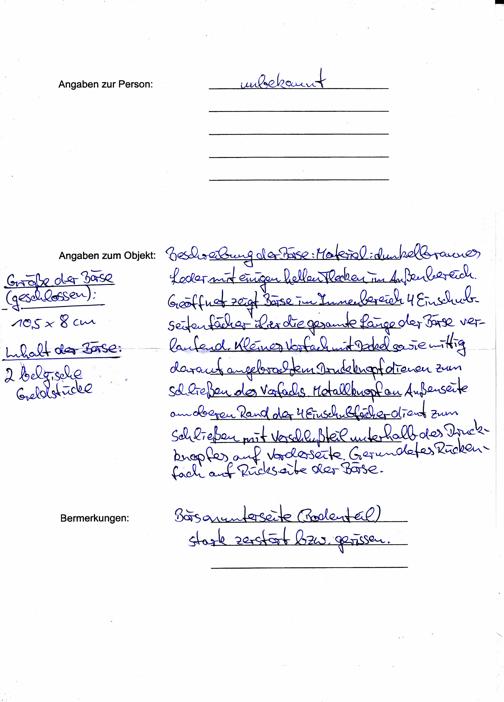 Angaben zur Person: unbekannt
Angaben zum Objekt: Beschreibung der Börse: Material: dunkelbraunes
Leder mit einigen hellen Flecken im Außenbereich.
Geöffnet zeigt Börse im Innenbereich 4 Einschub-
seitenfächer über die gesamte Länge der Börse ver-
laufend. Kleines Vorfach mit Deckel sowie mittig
darauf angebrachtem Druckknopf dienen zum
schließen des Vorfachs. Metallknopf an Außenseite
am oberen Rand der 4 Einschubfächer dient zum
schließen mit Verschlußteil unterhalb des Druck-
knopfes auf Vorderseite. Gerundetes Rücken-
fach auf Rückseite der Börse.
Größe der Börse
(geschlossen):
10,5 x 8 cm
Inhalt der Börse:
2 belgische
Geldstücke
Bermerkungen: Börsenunterseite (Bodenteil)
stark zerstört bzw. gerissen.